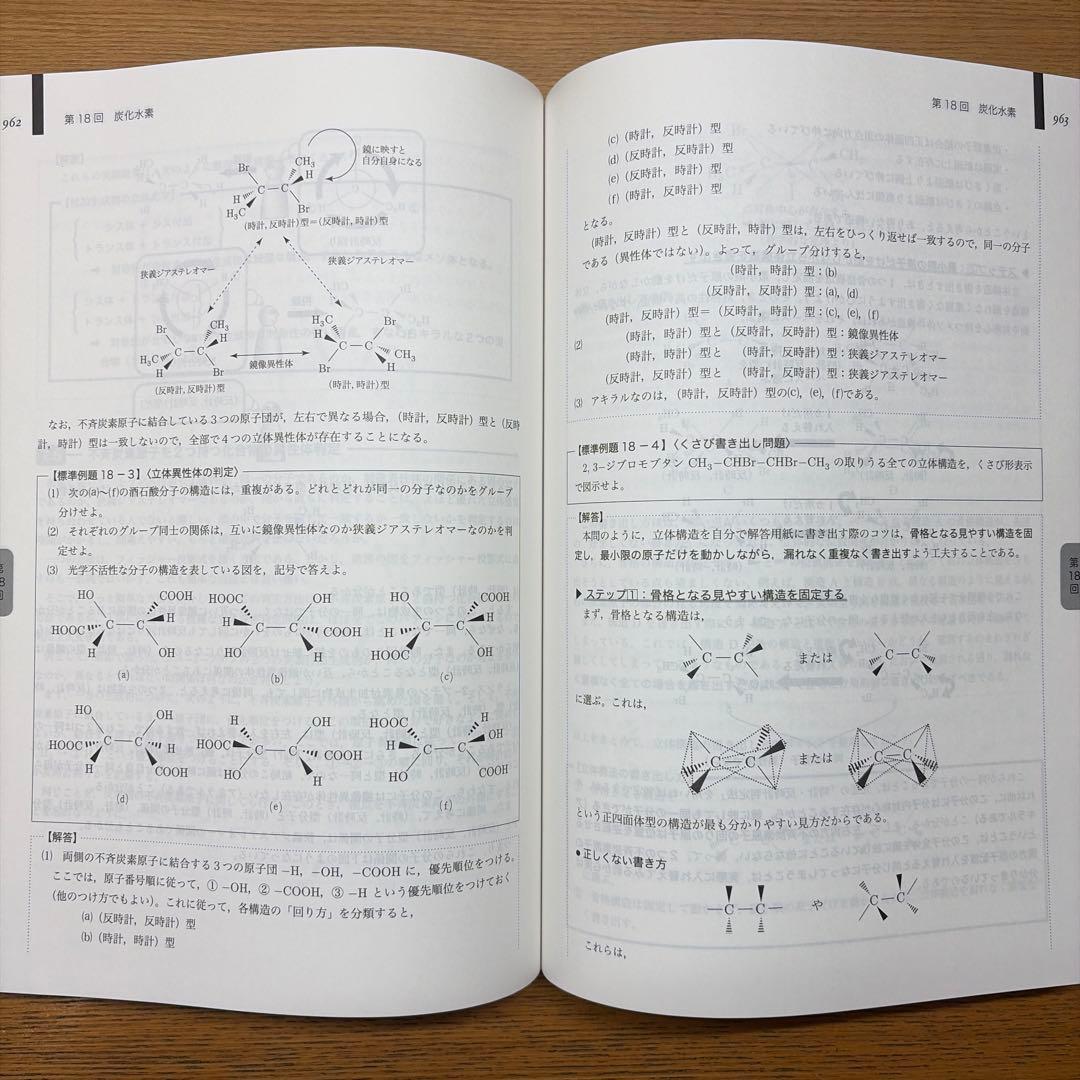 962
第18回 炭化水素
鏡に映すと
自分自身になる
Br
CH₃
H
C
C
H
H₃C
Br
(時計, 反時計)型＝(反時計, 時計)型
狭義ジアステレオマー
狭義ジアステレオマー
Br
CH₃
H
H₃C
C
C
H
Br
(反時計, 反時計)型
鏡像異性体
H₃C
Br
H
C
C
Br
H
CH₃
(時計, 時計)型
なお，不斉炭素原子に結合している3つの原子団が，左右で異なる場合，(時計，反時計)型と(反時
計，時計)型は一致しないので，全部で4つの立体異性体が存在することになる。
【標準例題18－3】〈立体異性体の判定〉
(1) 次の(a)～(f)の酒石酸分子の構造には，重複がある。どれとどれが同一の分子なのかをグループ
分けせよ。
(2) それぞれのグループ同士の関係は，互いに鏡像異性体なのか狭義ジアステレオマーなのかを判
定せよ。
(3) 光学不活性な分子の構造を表している図を，記号で答えよ。
HO
COOH
HOOC
C
C
H
H
OH
(a)
HOOC
OH
H
C
C
COOH
HO
H
(b)
HO
COOH
H
C
C
H
HOOC
OH
(c)
HO
OH
HOOC
C
C
H
H
COOH
(d)
H
OH
HOOC
C
C
COOH
HO
H
(e)
HOOC
H
H
C
C
OH
HO
COOH
(f)
【解答】
(1) 両側の不斉炭素原子に結合する3つの原子団 －H，－OH，－COOH に，優先順位をつける。
ここでは，原子番号順に従って，①－OH，②－COOH，③－H という優先順位をつけておく
(他のつけ方でもよい)。これに従って，各構造の「回り方」を分類すると，
(a) (反時計，反時計) 型
(b) (時計，時計) 型
第
18
回
第18回 炭化水素
963
(c) (時計，反時計) 型
(d) (反時計，反時計) 型
(e) (反時計，時計) 型
(f) (時計，反時計) 型
となる。
(時計，反時計) 型と (反時計，時計) 型は，左右をひっくり返せば一致するので，同一の分子
である (異性体ではない)。よって，グループ分けすると，
(時計，時計) 型：(b)
(反時計，反時計) 型：(a), (d)
(時計，反時計) 型＝ (反時計，時計) 型：(c), (e), (f)
(2) (時計，時計) 型と (反時計，反時計) 型：鏡像異性体
(時計，時計) 型と (時計，反時計) 型：狭義ジアステレオマー
(反時計，反時計) 型と (時計，反時計) 型：狭義ジアステレオマー
(3) アキラルなのは，(時計，反時計) 型の(c), (e), (f)である。
【標準例題18－4】〈くさび書き出し問題〉
2, 3－ジブロモブタン CH₃－CHBr－CHBr－CH₃ の取りうる全ての立体構造を，くさび形表示
で図示せよ。
【解答】
本問のように，立体構造を自分で解答用紙に書き出す際のコツは，骨格となる見やすい構造を固
定し，最小限の原子だけを動かしながら，漏れなく重複なく書き出すよう工夫することである。
▶ステップ1：骨格となる見やすい構造を固定する
まず，骨格となる構造は，
C
C
または
C
C
に選ぶ。これは，
C
C
または
C
C
という正四面体型の構造が最も分かりやすい見方だからである。
● 正しくない書き方
C
C
や
C
C
これらは，
第
18
回